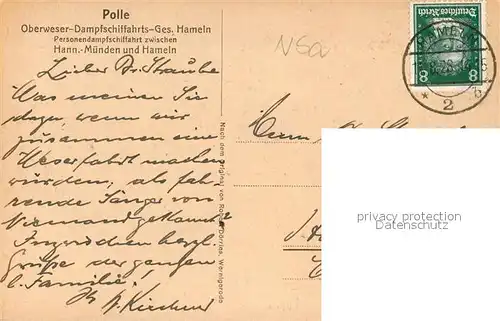 Polle
Oberweser-Dampfschiffahrts-Ges. Hameln
Personendampfschiffahrt zwischen
Hann.-Münden und Hameln
Lieber Dr. Straube
Was meinen Sie
dazu, wenn wir
zusammen eine
Weserfahrt machen
würden, als fah-
rende Sänger von
Niemand gekannt?
Inzwischen herzl.
Grüße der ganzen
l. Familie!
Ihr
Nach dem Original von
Wernigerode
Deutsches Reich
8 8
HAMELN
2
Herrn
privacy protection
Datenschutz